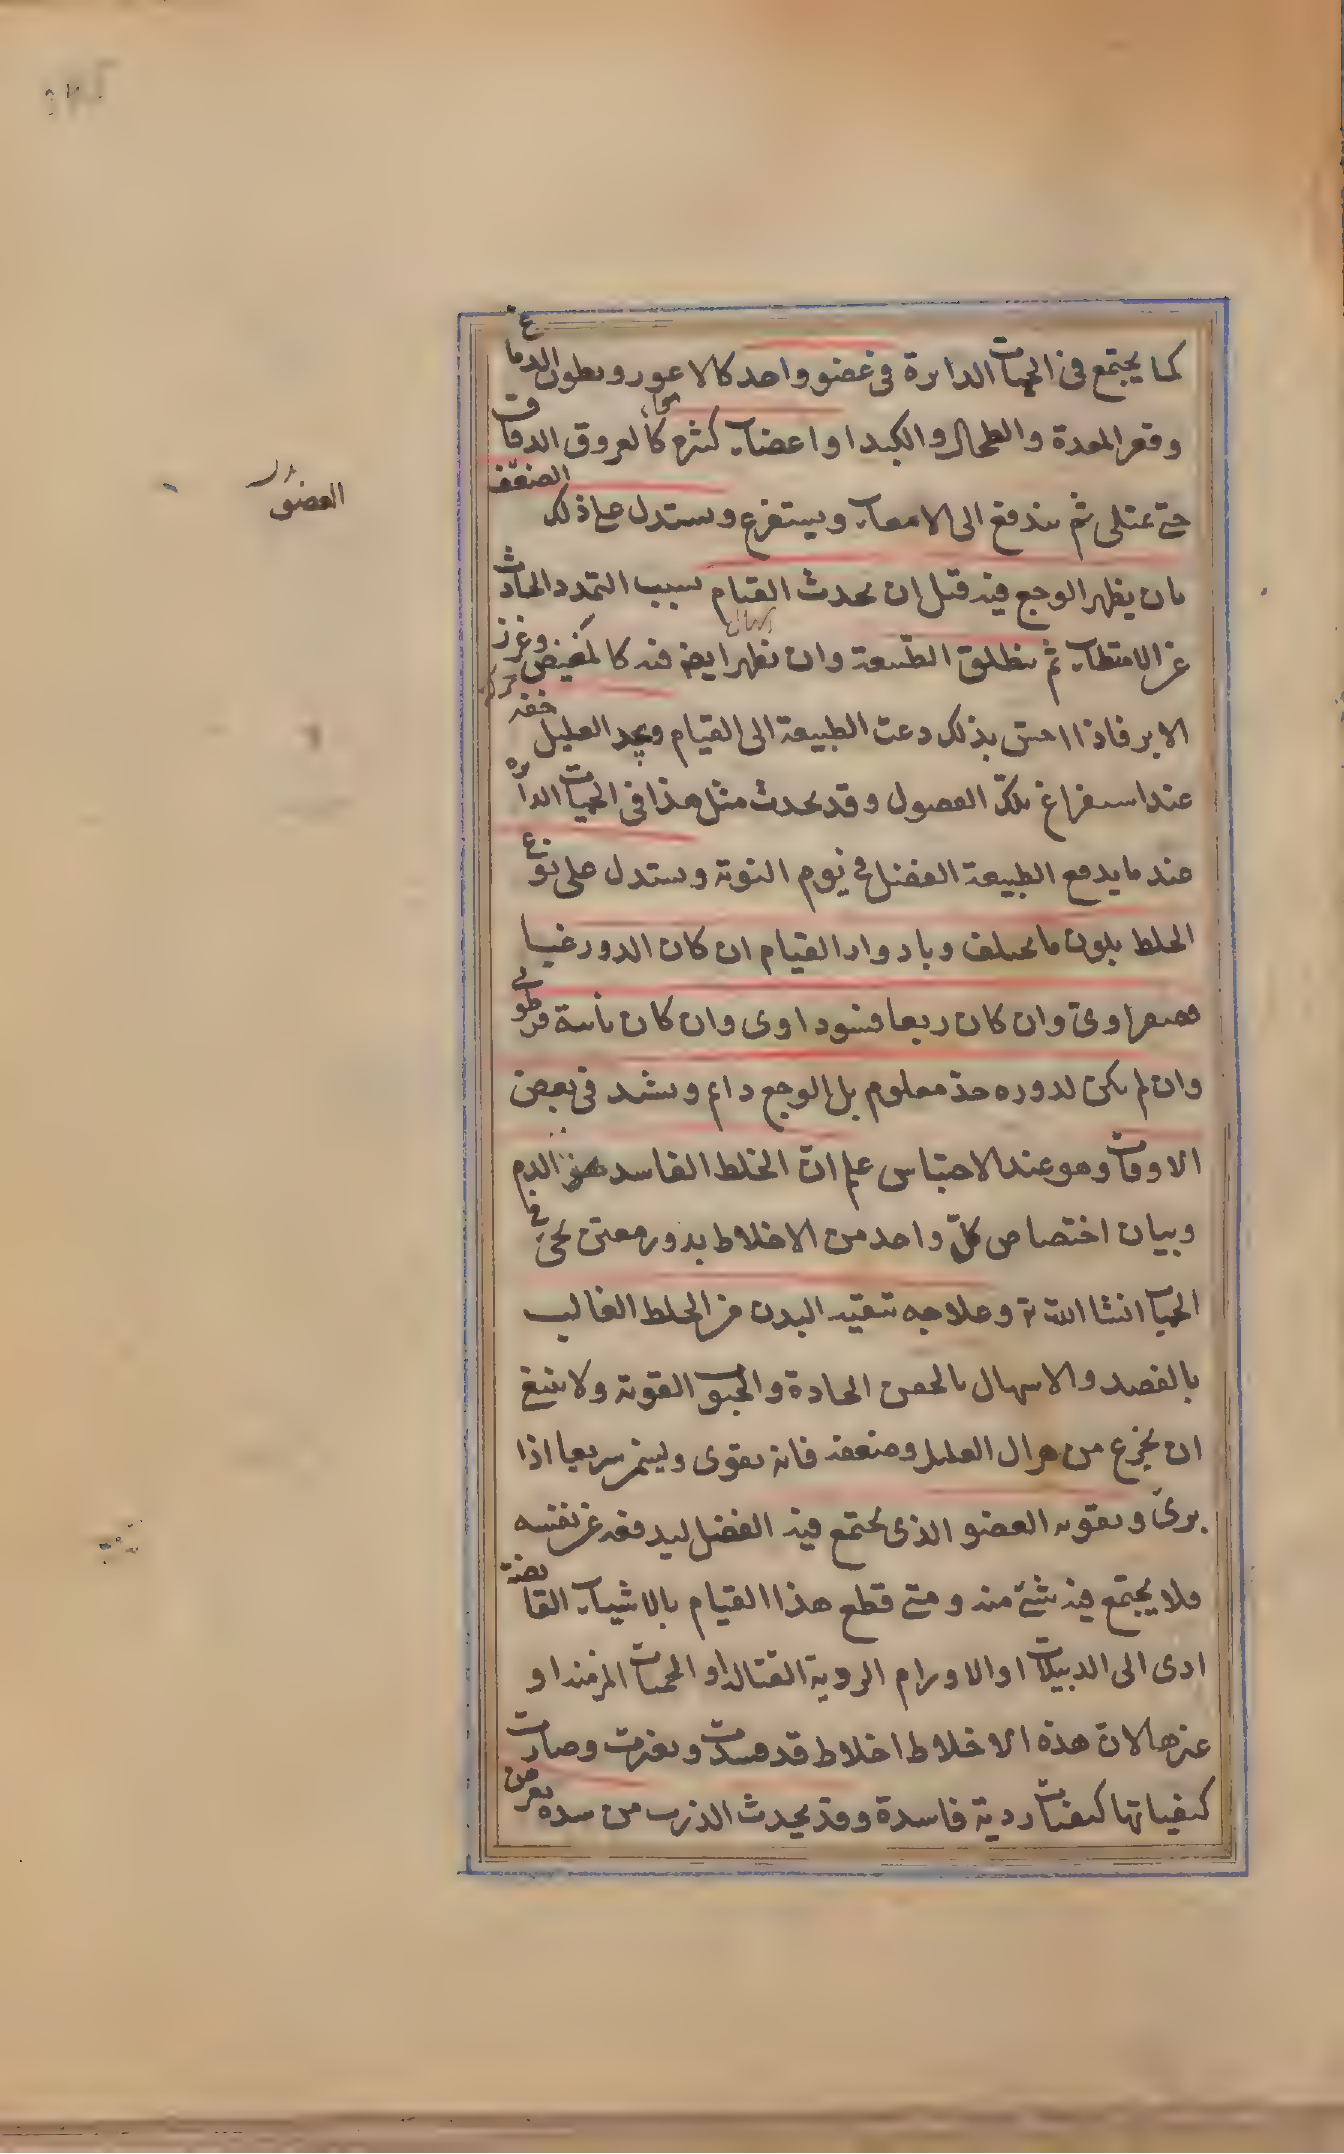 كما يجتمع في الحميات الدايرة في عضو واحد كالاعور وبطون الدماغ
وقعر المعدة والطحال والكبد او اعضاء كثيرة كالعروق الدقاق
حتى تمتلى ثم يندفع الى الامعاء ويستفرغ ويستدل على ذلك
بان يظهر الوجع فيه قبل ان يحدث القيام بسبب التمدد الحادث
عن الامتلاء ثم ينطلق الطبيعة وان يظهر ايضا فيه كالمغص وغرز
الابر فاذا احس بذلك دعت الطبيعة الى القيام ويجد العليل خفه
عند استفراغ تلك الفصول وقد يحدث مثل هذا في الحميات الدايره
عند ما يدفع الطبيعة الفضل في يوم النوبة ويستدل على نوع
الخلط بلون ما يختلف وبادوار القيام ان كان الدور غبا
فصفراوى وان كان ربعا فسوداوى وان كان نائبة فرطوبى
وان لم يكن لدوره حد معلوم بل الوجع دايم ويشتد في بعض
الاوقات وهو عند الاحتباس علم ان الخلط الفاسد هو الدم
وبيان اختصاص كل واحد من الاخلاط بدور معين يجئ في
الحميات انشا الله تع وعلاجه تنقية البدن من الخلط الغالب
بالفصد والاسهال بالحقن الحادة والحبوب القوية ولا ينبغي
ان يجزع من هزال العليل وضعفه فانه يقوى ويسمن سريعا اذا
برئ وتقوية العضو الذى يجتمع فيه الفضل ليدفعه عن نفسه
ولا يجتمع فيه شئ منه ومتى قطع هذا القيام بالاشياء القابضة
ادى الى الدبيلات او الاورام الردية القتالة او الحميات المزمنة او
غيرها لان هذه الاخلاط اخلاط قد فسدت وتغيرت وصارت
كيفياتها كيفيات ردية فاسدة وقد يحدث الذرب من سدة تعرض
العضو